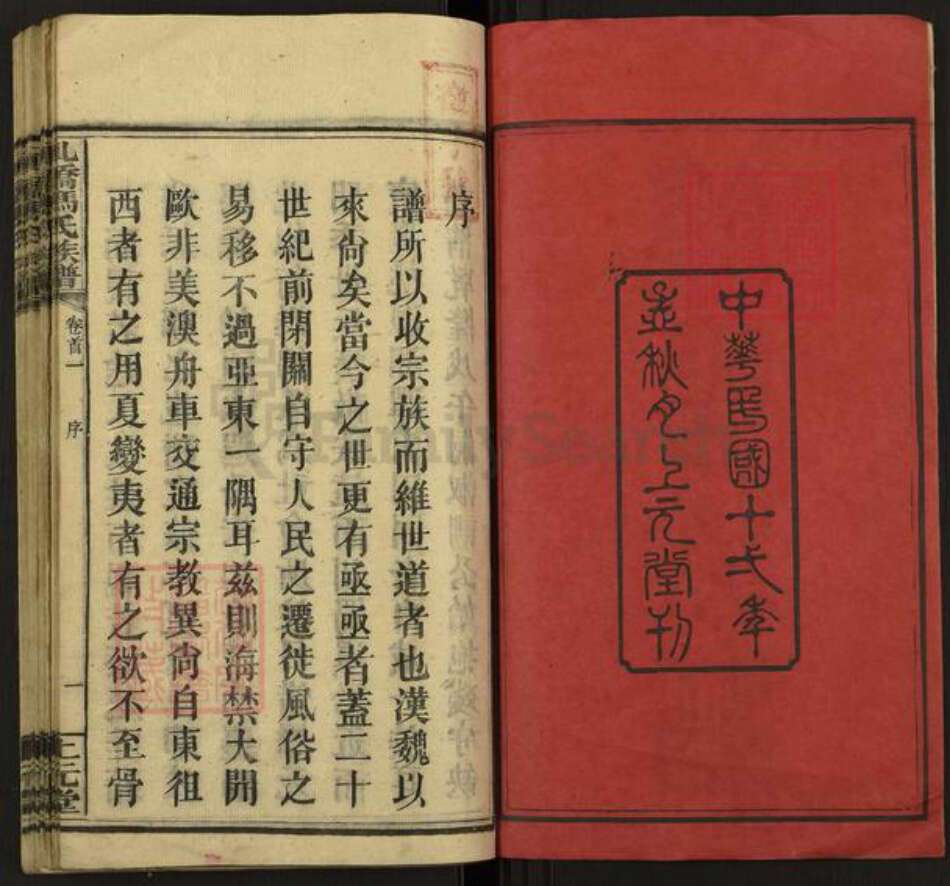 中華民國十七年
孟秋月上元堂刊
序
譜所以收宗族而維世道者也漢魏以
來尙矣當今之世更有亟亟者蓋二十
世紀前閉關自守人民之遷徙風俗之
易移不過亞東一隅耳兹則海禁大開
歐非美澳舟車交通宗教異尙自東徂
西者有之用夏變夷者有之欲不至骨
橋馮氏族譜
卷首一
序
一
上元堂